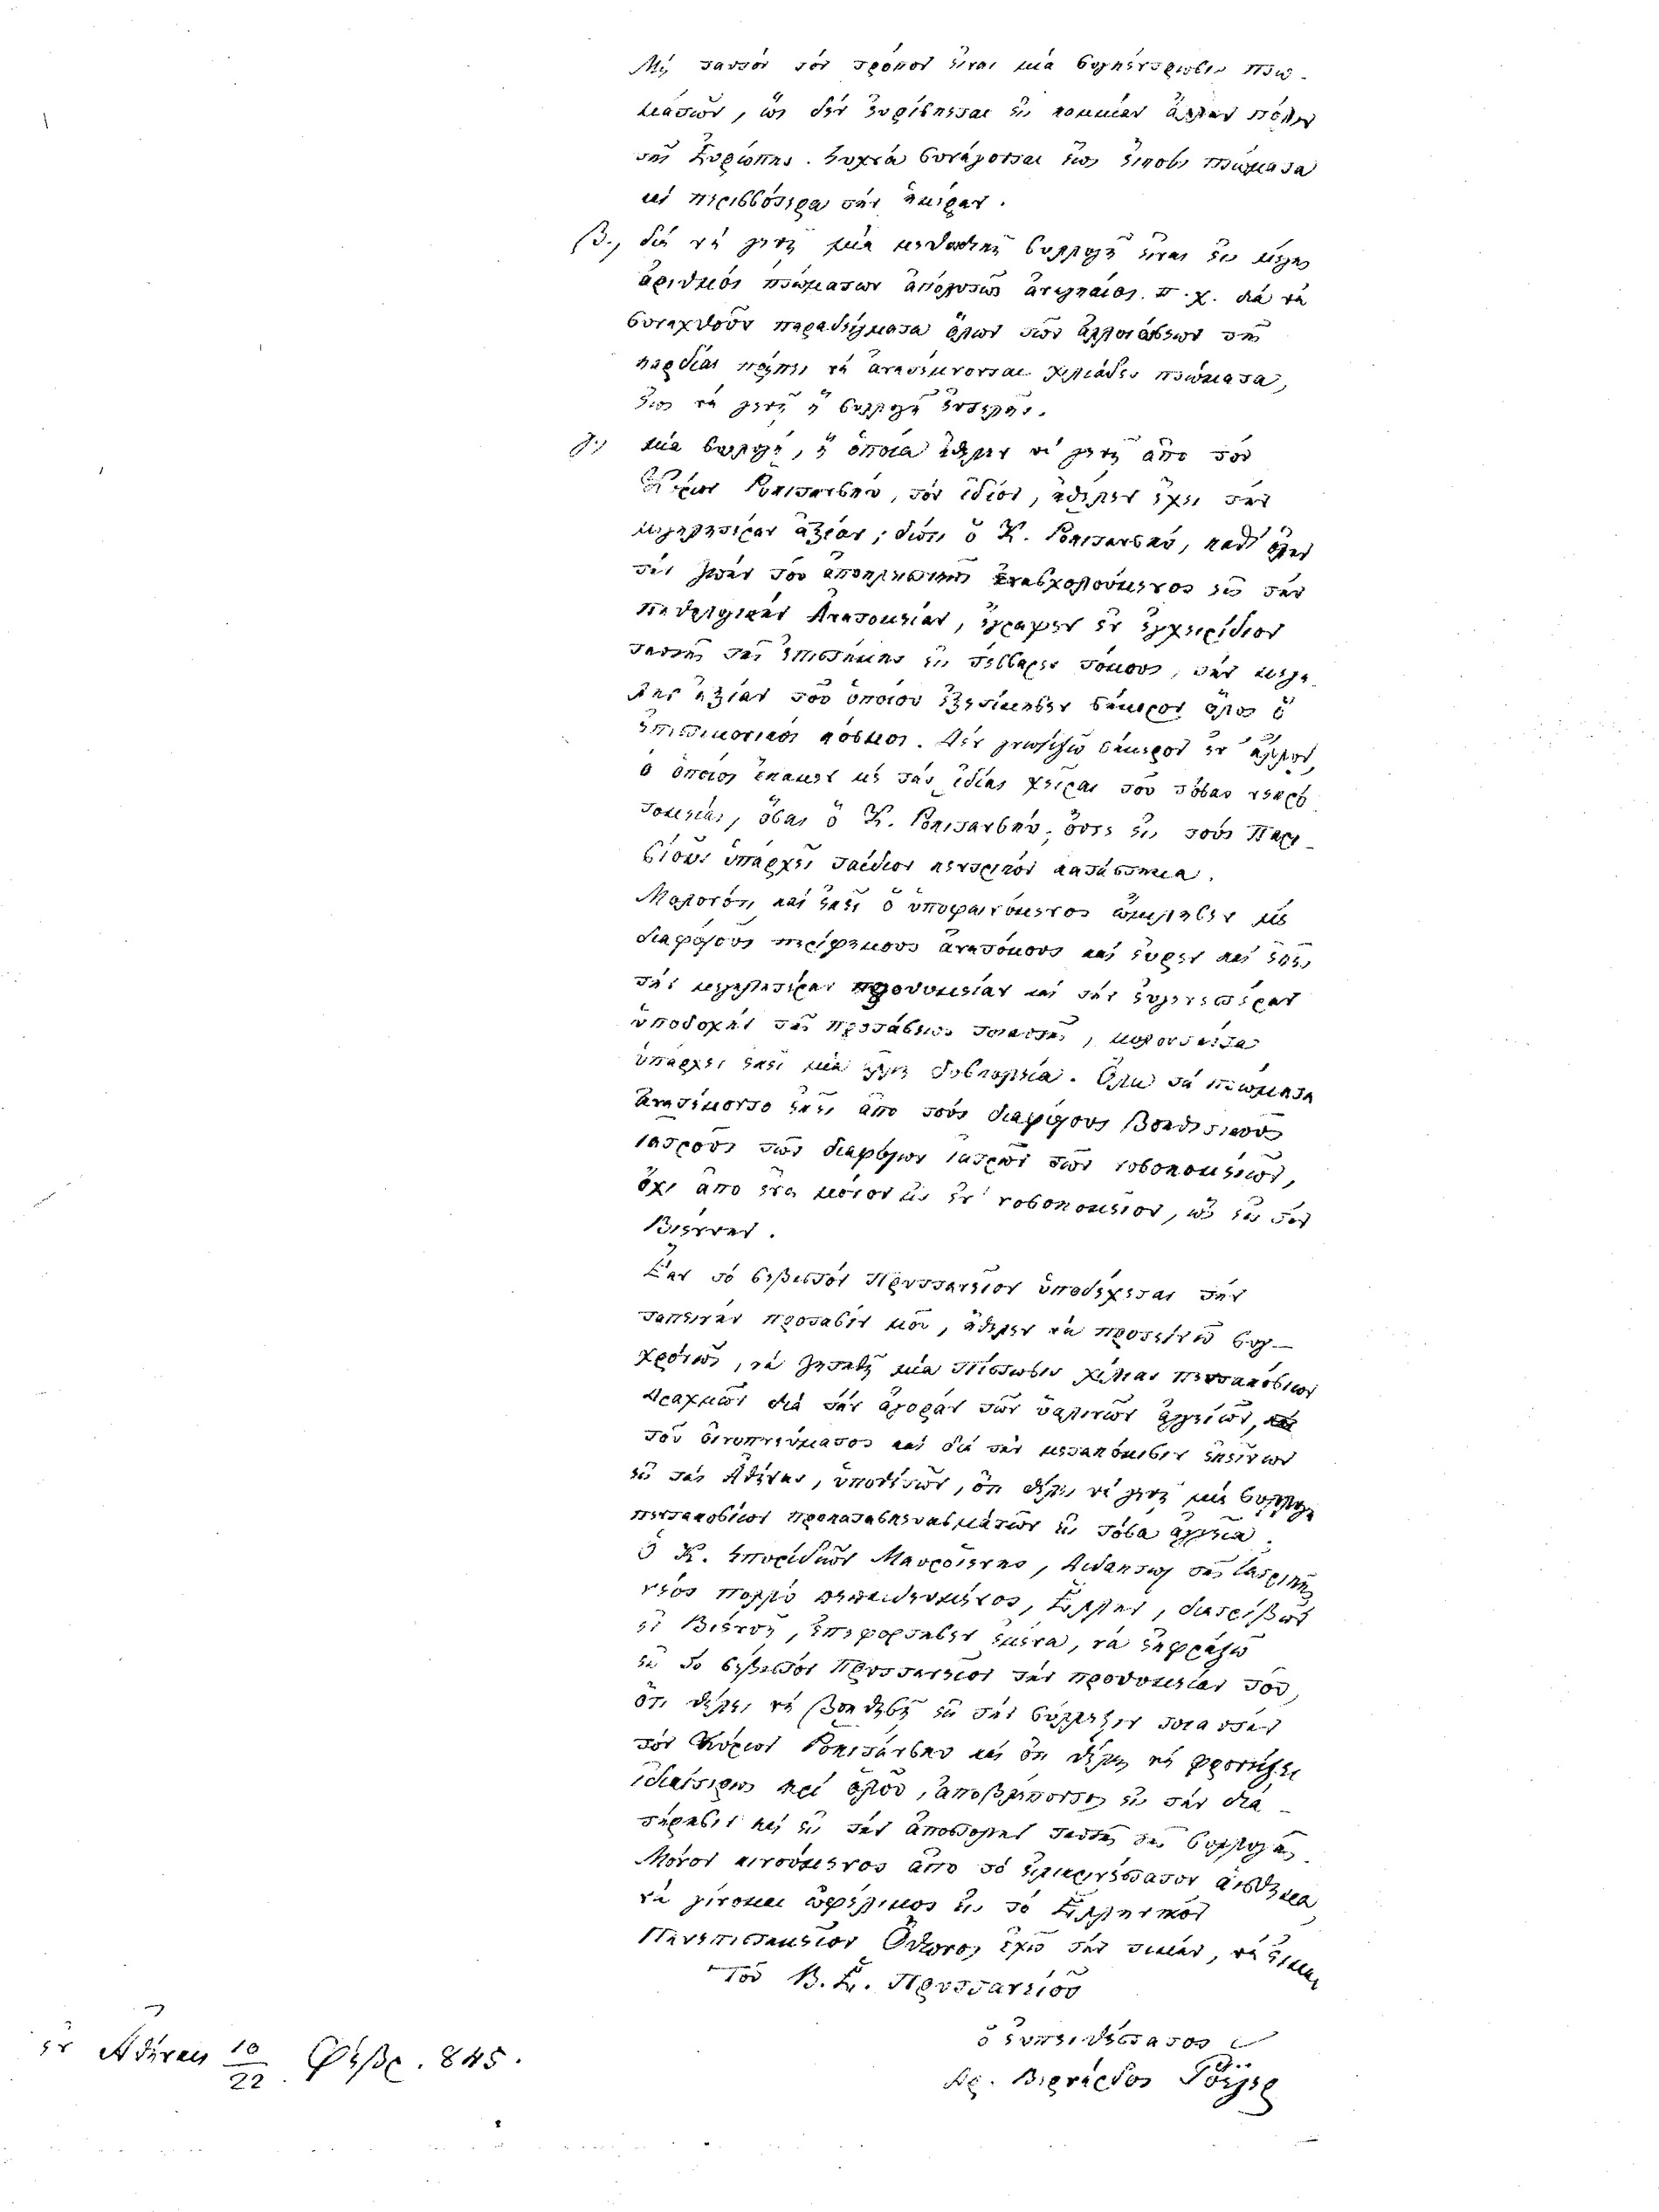 Μὲ ταυτὸν τὸν τρόπον εἶναι μία συγκέντρωσις πτω-
μάτων, ὡς δὲν εὑρίσκεται εἰς καμμίαν ἄλλην πόλιν
τῆς Εὐρώπης. Συχνὰ συνάγονται ἕως εἴκοσι πτώματα
καὶ περισσότερα τὴν ἡμέραν.
β., διὰ νὰ γενῇ μία μεθοδικὴ συλλογὴ εἶναι εἷς μέγας
ἀριθμὸς πτωμάτων ἀπολύτως ἀναγκαῖος. π.χ. διὰ νὰ
συναχθοῦν παραδείγματα ὅλων τῶν ἀλλοιώσεων τῆς
καρδίας πρέπει νὰ ἀνατέμνονται χιλιάδες πτώματα,
ἕως νὰ γενῇ ἡ συλλογὴ ἐντελής.
γ., μία συλλογή, ἡ ὁποία ἤθελεν νὰ γενῇ ἀπὸ τὸν
Κύριον Ροκιτανσκύ, τὸν ἴδιον, ἤθελεν ἔχει τὴν
μεγαλητέραν ἀξίαν; διότι ὁ Κ. Ροκιτανσκύ, καθ' ὅλην
τὴν ζωήν του ἀποκλειστικῶς ἐνασχολούμενος εἰς τὴν
παθολογικὴν Ἀνατομίαν, ἔγραψεν ἓν ἐγχειρίδιον
ταύτης τῆς ἐπιστήμης εἰς τέσσαρες τόμους, τὴν μεγά-
λην ἀξίαν τοῦ ὁποίου ἐξετίμησεν σήμερον ὅλος ὁ
ἐπιστημονικὸς κόσμος. Δὲν γνωρίζω σήμερον ἓν ἄλλον,
ὁ ὁποῖος ἔκαμεν μὲ τὰς ἰδίας χεῖρας του τόσας νεκρο
τομίας, ὅσας ὁ Κ. Ροκιτανσκύ; οὔτε εἰς τοὺς Παρι-
σίους ὑπάρχει τοιοῦτον κεντρικὸν κατάστημα.
Μολονότι καὶ ἐκεῖ ὁ ὑποφαινόμενος ὡμίλησεν μὲ
διαφόρους περίφημους ἀνατόμους καὶ εὗρεν καὶ ἐκεῖ
τὴν μεγαλητέραν προθυμίαν καὶ τὴν εὐγενεστέραν
ὑποδοχὴν τῆς προτάσεως τοιαύτης, μολονταῦτα
ὑπάρχει ἐκεῖ μία ἄλλη δυσκολία. Ὅλα τὰ πτώματα
ἀνατέμοντο ἐκεῖ ἀπὸ τοὺς διαφόρους βοηθητικοὺς
ἰατροὺς τῶν διαφόρων ἰατρῶν τῶν νοσοκομείων,
ὄχι ἀπὸ ἕνα μόνον εἰς ἓν νοσοκομεῖον, ὡς εἰς τὴν
Βιένναν.
Ἐὰν τὸ σεβαστὸν Πρυττανεῖον ὑποδέχεται τὴν
ταπεινὴν πρότασίν μου, ἤθελεν νὰ προτείνω συγ-
χρόνως, νὰ ζητηθῇ μία πίστωσις χιλίων πεντακοσίων
Δραχμῶν διὰ τὴν ἀγορὰν τῶν ὑαλινῶν ἀγγείων,
τοῦ οἰνοπνεύματος καὶ διὰ τὴν μετακόμισιν ἐκείνων
εἰς τὰς Ἀθήνας, ὑποθέτων, ὅτι θέλει νὰ γενῇ μία συλλογὴ
πεντακοσίων προκατασκευασμάτων εἰς τόσα ἀγγεῖα.
Ὁ Κ. Σπυρίδων Μαυρογένης, Διδάκτωρ τῆς ἰατρικῆς
νέος πολλὰ πεπαιδευμένος, Ἕλλην, διατρίβων
ἐν Βιέννῃ, ἐπεφόρτησεν ἐμένα, νὰ ἐκφράζω
εἰς τὸ σεβαστὸν Πρυττανεῖον τὴν προθυμίαν του,
ὅτι θέλει νὰ βοηθήσῃ εἰς τὴν σύλλεξιν τοιαύτην
τὸν Κύριον Ροκιτάνσκυ καὶ ὅτι θέλει νὰ φροντίζει
ἰδιαίτερως περὶ ὅλου, ἀποβλέποντος εἰς τὴν δια-
τήρησιν καὶ εἰς τὴν ἀποστολὴν ταύτης τῆς συλλογῆς.
Μόνον κινούμενος ἀπὸ τὸ εἰλικρινέστατον αἴσθημα
νὰ γίνομαι ὠφέλιμος εἰς τὸ Ἑλληνικὸν
Πανεπιστημεῖον Ὄθωνος ἔχω τὴν τιμήν, νὰ εἶμαι
Τοῦ Β. Ἑ. Πρυττανείου
ὁ εὐπειθέστατος
Δρ. Βερνάρδος Ρόϊζερ
ἐν Ἀθήναις 10/22 Φεβρ. 845.